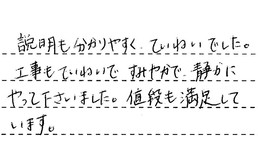 説明も分かりやすく、ていねいでした。
工事もていねいで すみやかで 静かに
やって下さいました。値段も満足して
います。